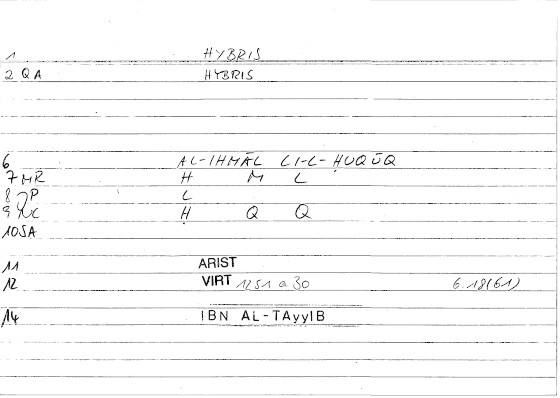 1 HYBRIS
2 QA HYBRIS
6 AL-IHMĀL LI-L-ḤUQŪQ
7 MR H M L
8 JP L
9 NC H Q Q
10 SA
11 ARIST
12 VIRT 1251 a 30 6.18(61)
14 IBN AL-TAyyIB